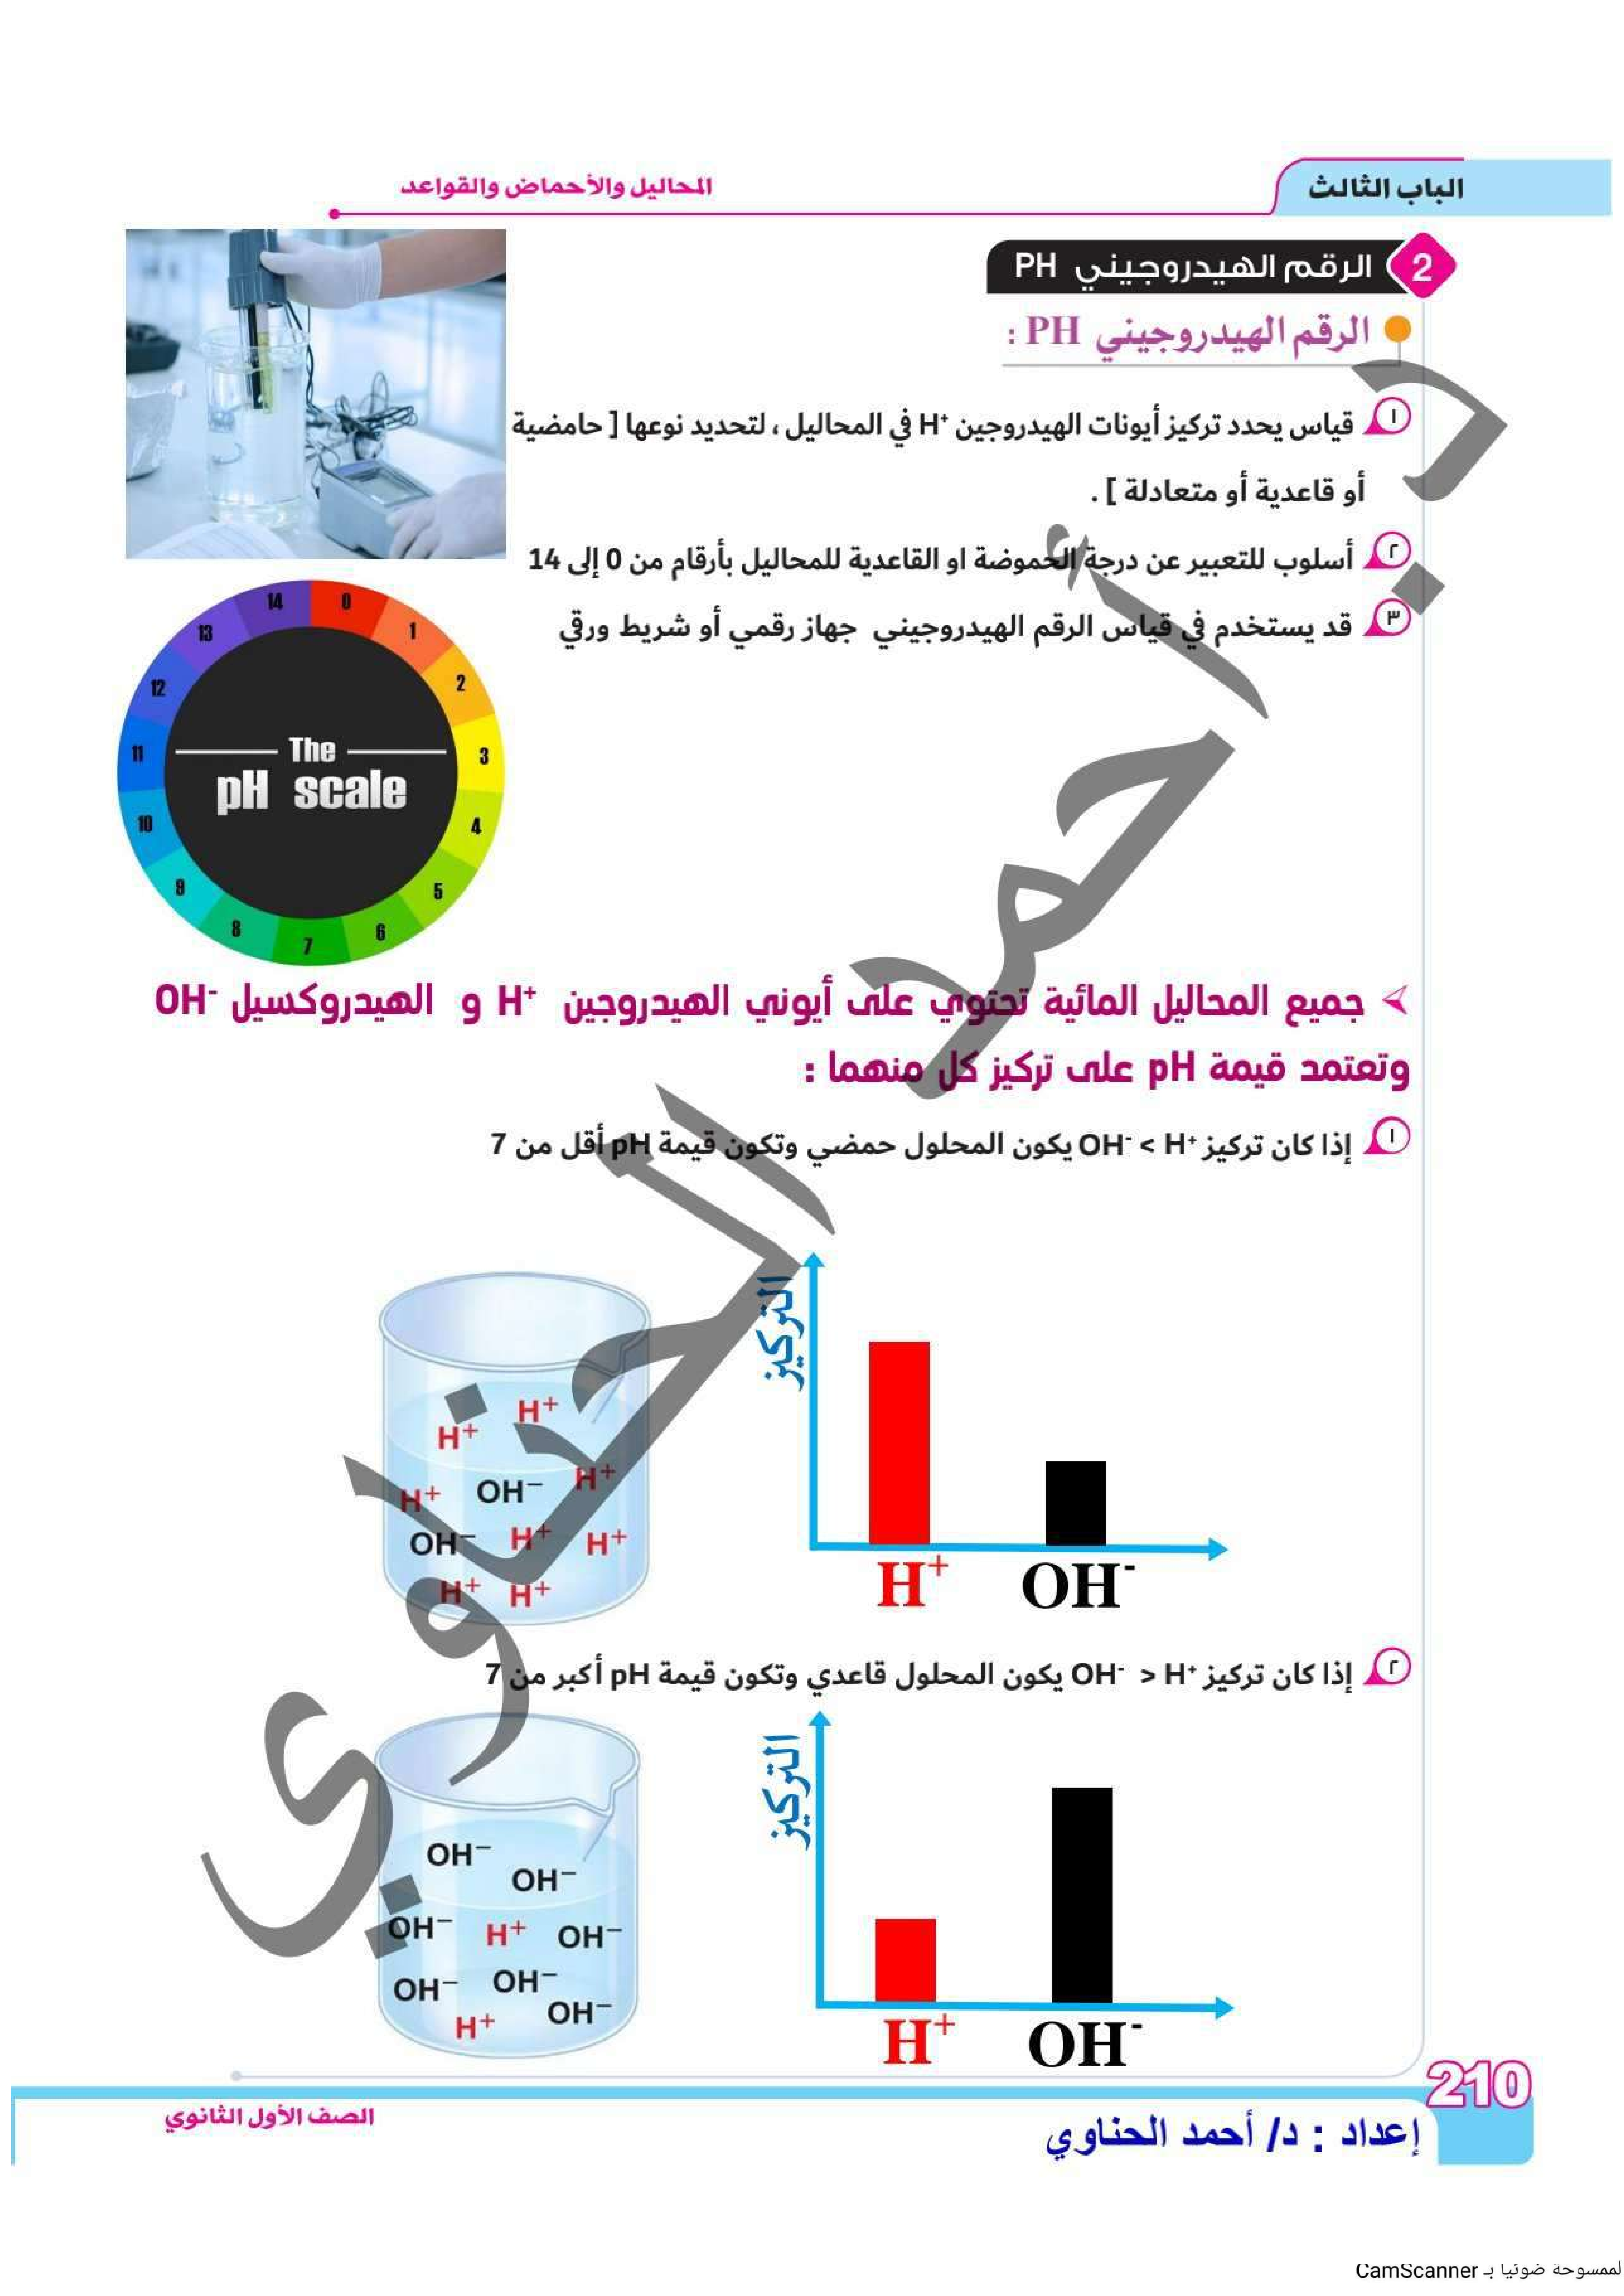 الباب الثالث
المحاليل والأحماض والقواعد
2 الرقم الهيدروجيني PH
الرقم الهيدروجيني PH :
١ قياس يحدد تركيز أيونات الهيدروجين H⁺ في المحاليل ، لتحديد نوعها [ حامضية
أو قاعدية أو متعادلة ] .
٢ أسلوب للتعبير عن درجة الحموضة او القاعدية للمحاليل بأرقام من 0 إلى 14
٣ قد يستخدم في قياس الرقم الهيدروجيني جهاز رقمي أو شريط ورقي
0
1
2
3
4
5
6
7
8
9
10
11
12
13
14
The
pH scale
جميع المحاليل المائية تحتوي على أيوني الهيدروجين H⁺ و الهيدروكسيل OH⁻
وتعتمد قيمة pH على تركيز كل منهما :
١ إذا كان تركيز OH⁻ < H⁺ يكون المحلول حمضي وتكون قيمة pH أقل من 7
التركيز
H⁺ OH⁻
H⁺
H⁺
H⁺ OH⁻ H⁺
OH⁻ H⁺ H⁺
H⁺ H⁺
٢ إذا كان تركيز OH⁻ > H⁺ يكون المحلول قاعدي وتكون قيمة pH أكبر من 7
التركيز
H⁺ OH⁻
OH⁻
OH⁻
OH⁻ H⁺ OH⁻
OH⁻ OH⁻
H⁺ OH⁻
د. أحمد الحناوي
210
الصف الأول الثانوي
إعداد : د/ أحمد الحناوي
الممسوحة ضوئيا بـ CamScanner